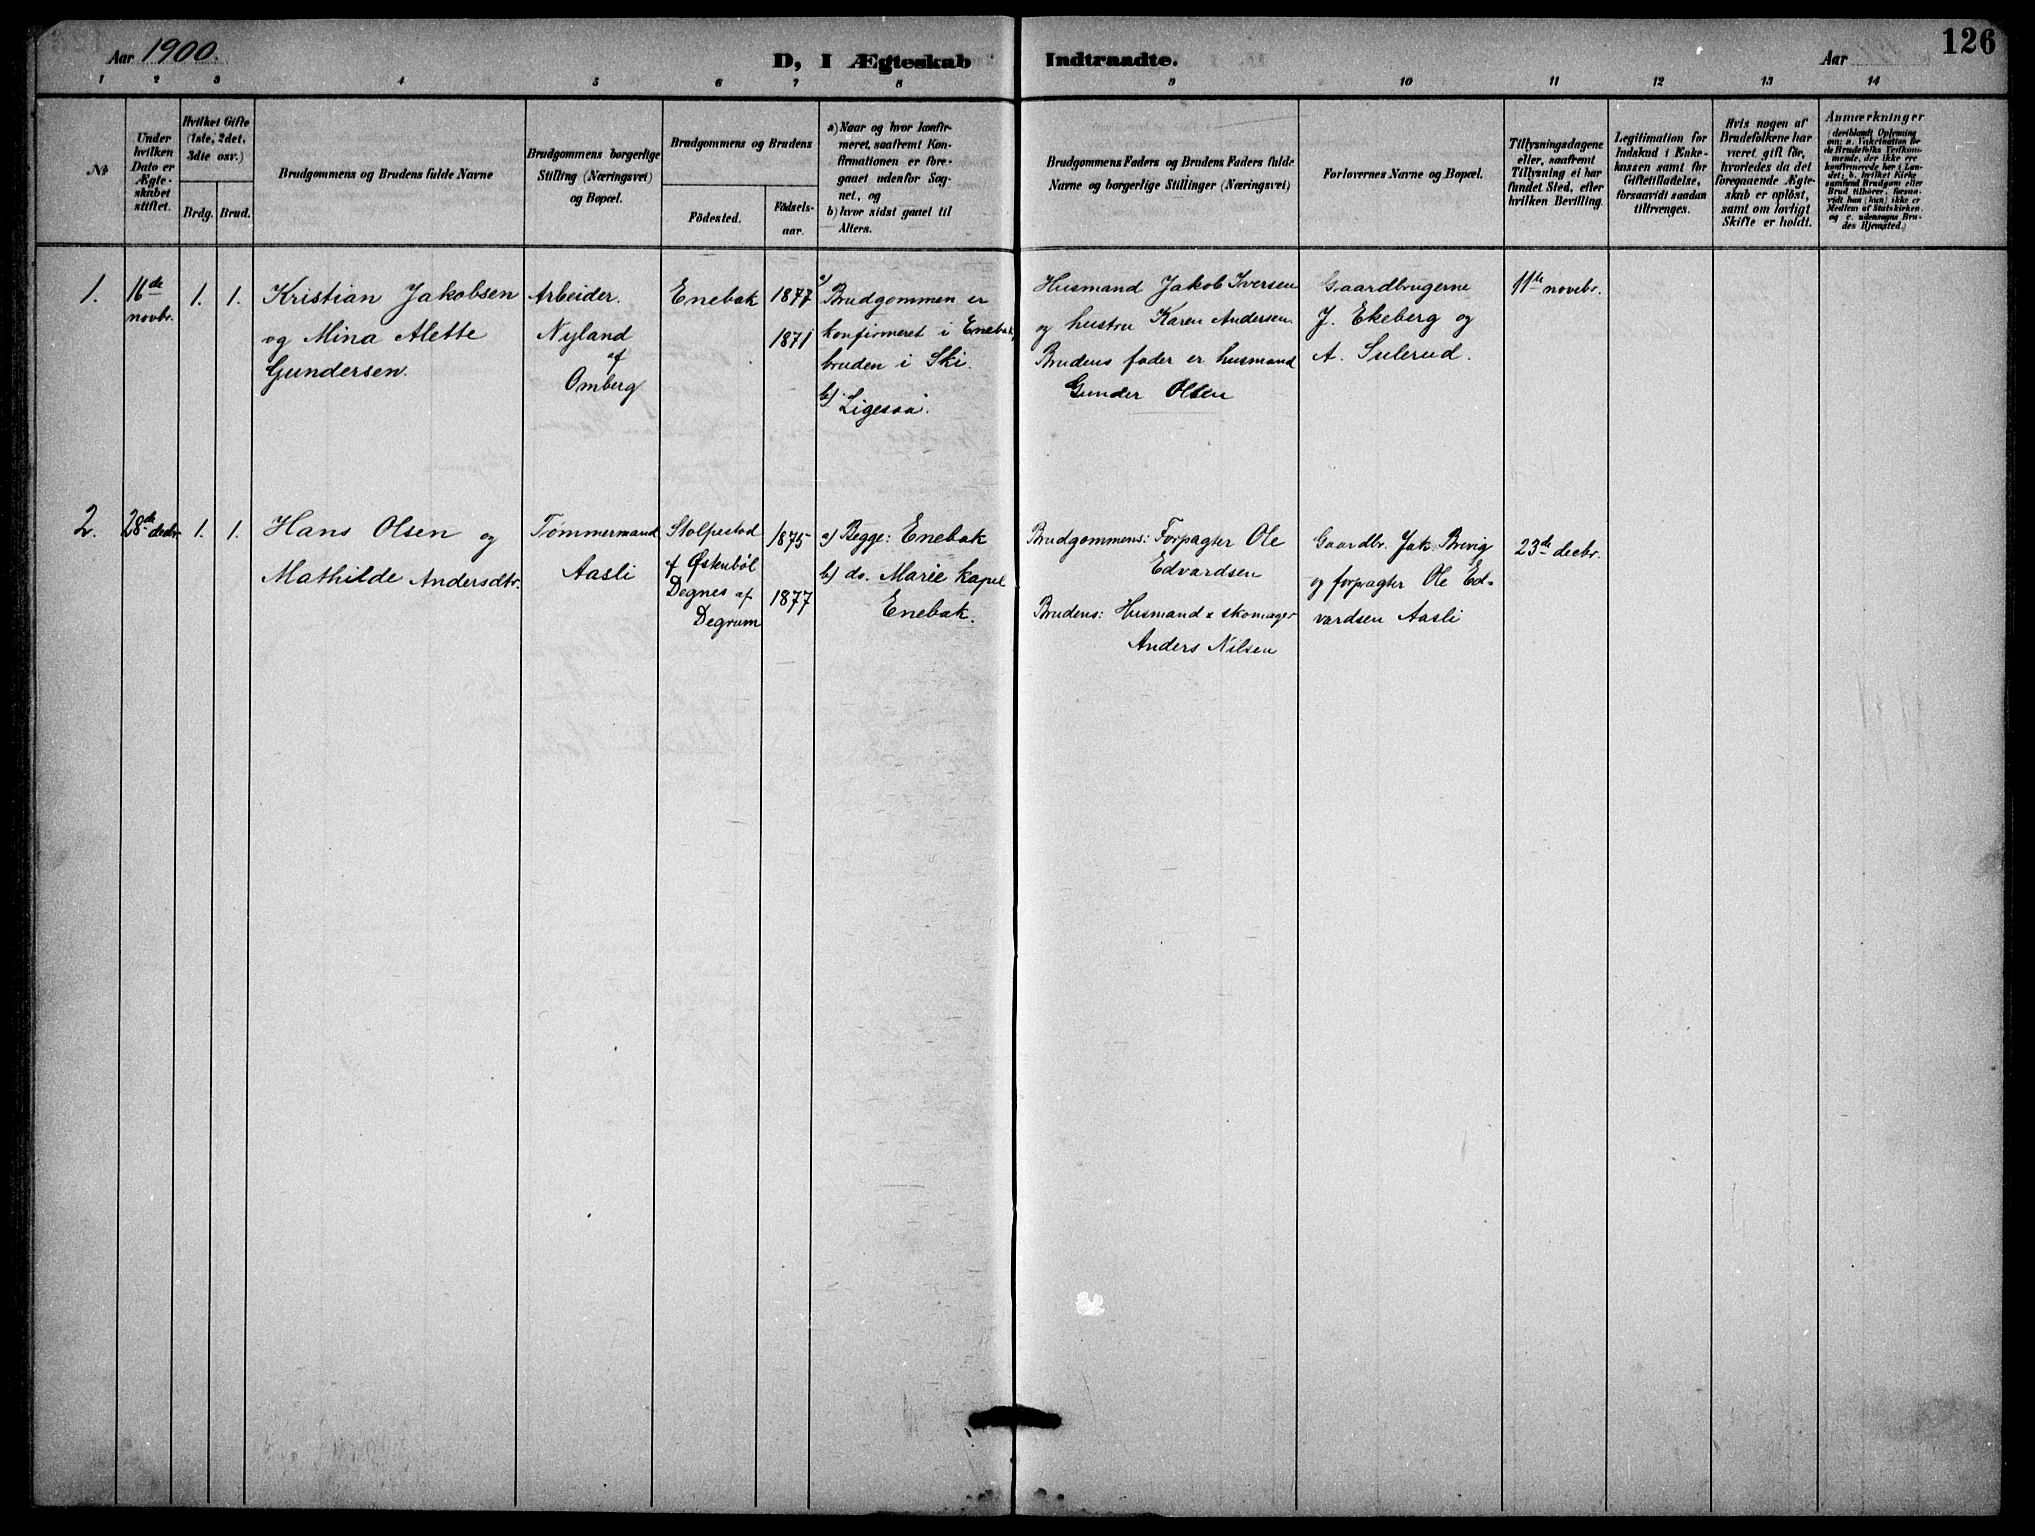 Aar 1900.
D, I Ægteskab Indtraadte.
Aar
126
1 2 3 4 5 6 7 8 9 10 11 12 13 14
No
Under
hvilken
Dato er
Ægte-
skabet
stiftet.
Hvilket Gifte
(1ste, 2det,
3die osv.)
Brdg. Brud.
Brudgommens og Brudens fulde Navne
Brudgommens borgerlige
Stilling (Næringsvei)
og Bopæl.
Brudgommens og Brudens
Födested.
Födsels-
aar.
a) Naar og hvor konfir-
meret, saafremt Kon-
firmationen er fore-
gaaet udenfor Sog-
net, og
b) hvor sidst gaaet til
Alters.
Brudgommens Faders og Brudens Faders fulde
Navne og borgerlige Stillinger (Næringsvei)
Forlovernes Navne og Bopæl.
Tillysningsdagene
eller, saafremt
Tillysning ei har
fundet Sted, efter
hvilken Bevilling.
Legitimation for
Indskud i Enke-
kassen samt for
Giftetilladelse,
forsaavidt saadan
tiltrænges.
Hvis nogen af
Brudefolkene har
været gift för,
hvorledes da det
foregaaende Ægte-
skab er oplöst,
samt om lovligt
Skifte er holdt.
Anmærkninger
(deriblandt Oplysning
om: a. Vakcination for
de Brudefolks Vedkom-
mende, der ikke ere
konfirmerede her i Lan-
det; b. hvilket Kirke-
samfund Brudgom eller
Brud tilhörer, forsaa-
vidt han (hun) ikke er
Medlem af Statskirken,
og c. udensogns Bru-
des Hjemsted.)
1.
16de
novbr.
1. 1.
Kristian Jakobsen
og Mina Alette
Gundersen.
Arbeider.
Nyland
af
Omberg
Enebak
1877
1871
a)
Brudgommen er
konfirmeret i Enebak,
bruden i Ski.
b) Ligesaa.
Husmand Jakob Iversen
og hustru Karen Andersen.
Brudens fader er husmand
Gunder Olsen
Gaardbrugerne
J. Ekeberg og
A. Sulerud.
11te novbr.
2.
28de decbr.
1. 1.
Hans Olsen og
Mathilde Andersdtr.
Tømmermand
Aasli
Stolpestad
af Østenböl
Degnes af
Degrum
1875
1877
a) Begge: Enebak
b) do. Marie kapel
Enebak.
Brudgommens: Forpagter Ole
Edvardsen
Brudens: Husmand & skomager
Anders Nilsen
Gaardbr. Jak. Brevig
og forpagter Ole Ed-
vardsen Aasli
23de decbr.